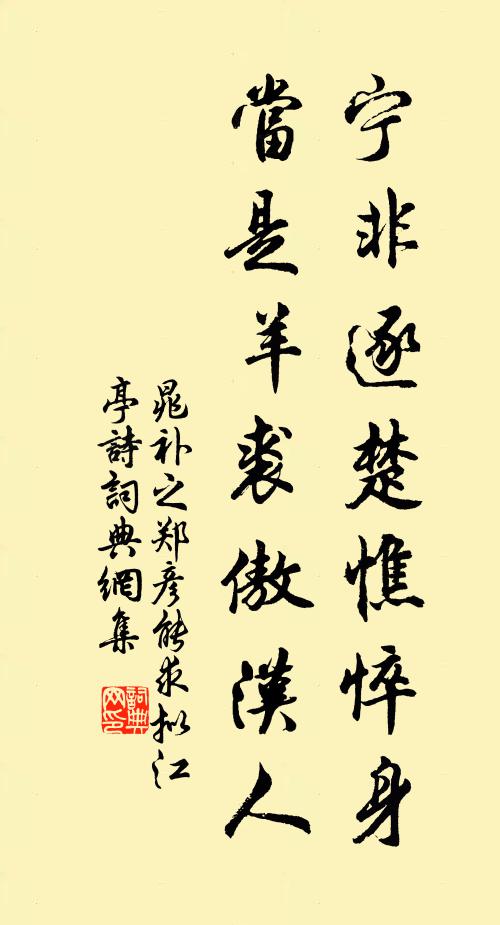 宁非逐楚憔悴身
當是羊裘傲漢人
晁补之郑彦能求拟江
亭詩詞典網集
詞典网印